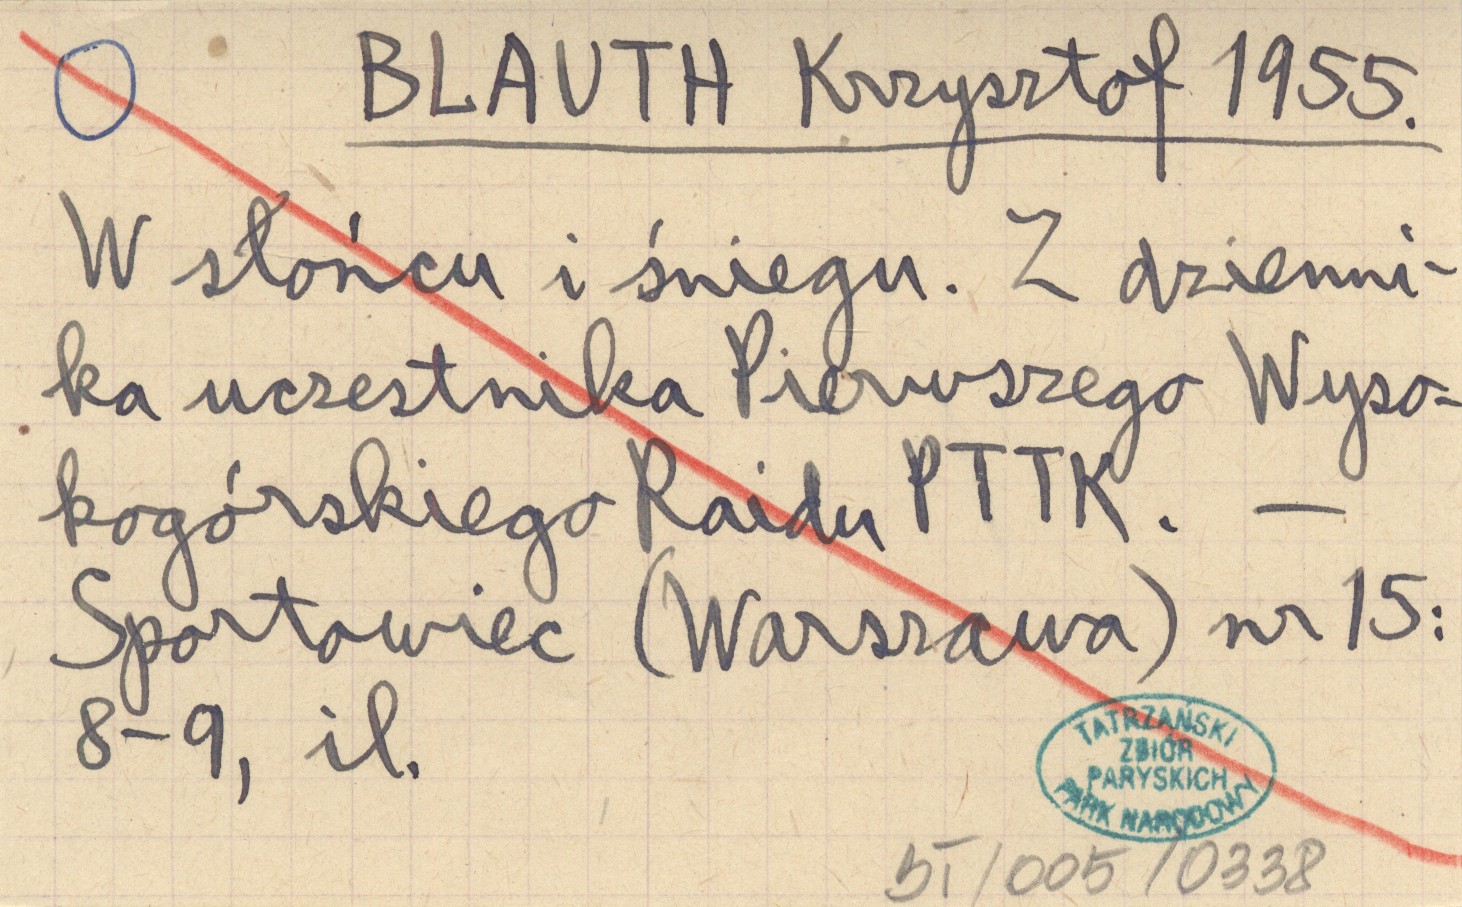 BLAUTH Krzysztof 1955.
W słońcu i śniegu. Z dzienni-
ka uczestnika Pierwszego Wyso-
kogórskiego Raidu PTTK. —
Sportowiec (Warszawa) nr 15:
8-9, il.
TATRZAŃSKI
ZBIÓR
PARYSKICH
PARK NARODOWY
BT/005/0338